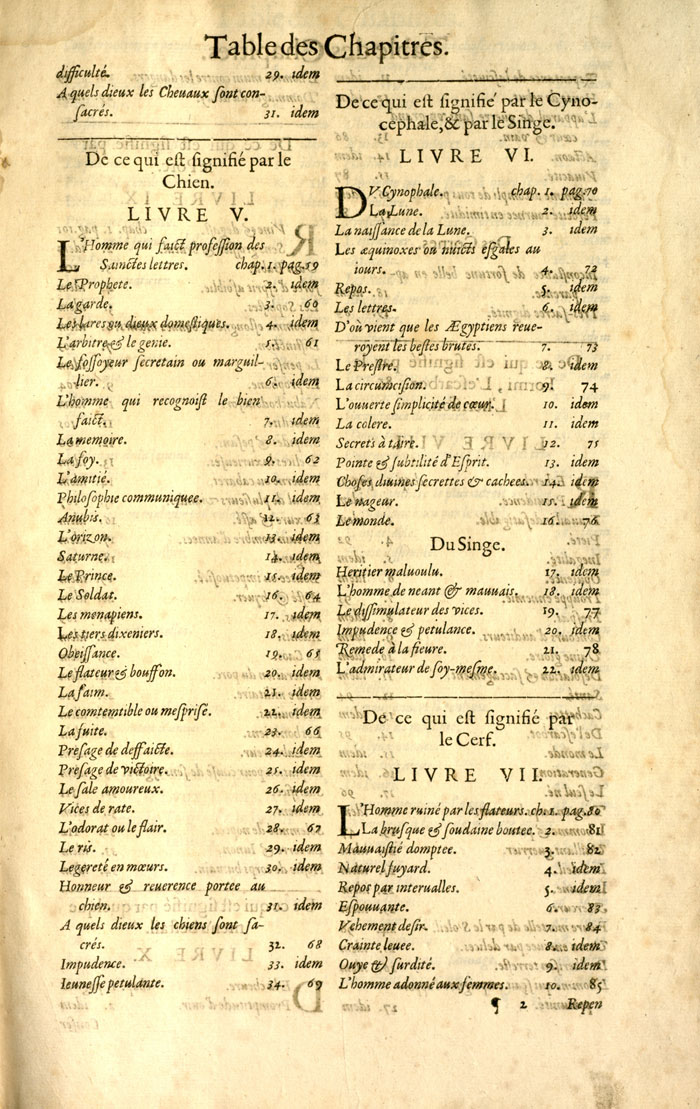 Table des Chapitres.
difficulté. 29. idem
A quels dieux les Cheuaux sont con-
sacrés. 31. idem
De ce qui est signifié par le
Chien.
LIVRE V.
L'Homme qui faict profession des
Sainctes lettres. chap. 1. pag. 59
Le Prophete. 2. idem
La garde. 3. 60
Les lares ou dieux domestiques. 4. idem
L'arbitre & le genie. 5. 61
Le fossoyeur secretain ou marguil-
lier. 6. idem
L'homme qui recognoist le bien
faict. 7. idem
La memoire. 8. idem
La foy. 9. 62
L'amitié. 10. idem
Philosophie communiquee. 11. idem
Anubis. 12. 63
L'orizon. 13. idem
Saturne. 14. idem
Le Prince. 15. idem
Le Soldat. 16. 64
Les menapiens. 17. idem
Les tiers dixeniers. 18. idem
Obeissance. 19. 65
Le flateur & bouffon. 20. idem
La faim. 21. idem
Le comtemtible ou mesprisé. 22. idem
La fuite. 23. 66
Presage de deffaicte. 24. idem
Presage de victoire. 25. idem
Le sale amoureux. 26. idem
Vices de rate. 27. idem
L'odorat ou le flair. 28. 67
Le ris. 29. idem
Legereté en mœurs. 30. idem
Honneur & reuerence portee au
chien. 31. idem
A quels dieux les chiens sont sa-
crés. 32. 68
Impudence. 33. idem
Ieunesse petulante. 34. 69
De ce qui est signifié par le Cyno-
cephale, & par le Singe.
LIVRE VI.
DV Cynophale. chap. 1. pag. 70
La Lune. 2. idem
La naissance de la Lune. 3. idem
Les æquinoxes ou nuicts esgales au
iours. 4. 72
Repos. 5. idem
Les lettres. 6. idem
D'où vient que les Ægyptiens reue-
royent les bestes brutes. 7. 73
Le Prestre. 8. idem
La circumcision. 9. 74
L'ouuerte simplicité de cœur. 10. idem
La colere. 11. idem
Secrets à taire. 12. 75
Pointe & subtilité d'Esprit. 13. idem
Choses diuines secrettes & cachees. 14. idem
Le nageur. 15. idem
Le monde. 16. 76
Du Singe.
Heritier maluoulu. 17. idem
L'homme de neant & mauuais. 18. idem
Le dissimulateur des vices. 19. 77
Impudence & petulance. 20. idem
Remede à la fieure. 21. 78
L'admirateur de soy-mesme. 22. idem
De ce qui est signifié par
le Cerf.
LIVRE VII.
L'Homme ruiné par les flateurs. ch. 1. pag. 80
La brusque & soudaine boutee. 2. 81
Mauuaistié domptee. 3. 82
Naturel fuyard. 4. idem
Repos par interualles. 5. idem
Espouuante. 6. 83
Vehement desir. 7. 84
Crainte leuee. 8. idem
Ouye & surdité. 9. idem
L'homme adonné aux femmes. 10. 85
¶ 2 Repen